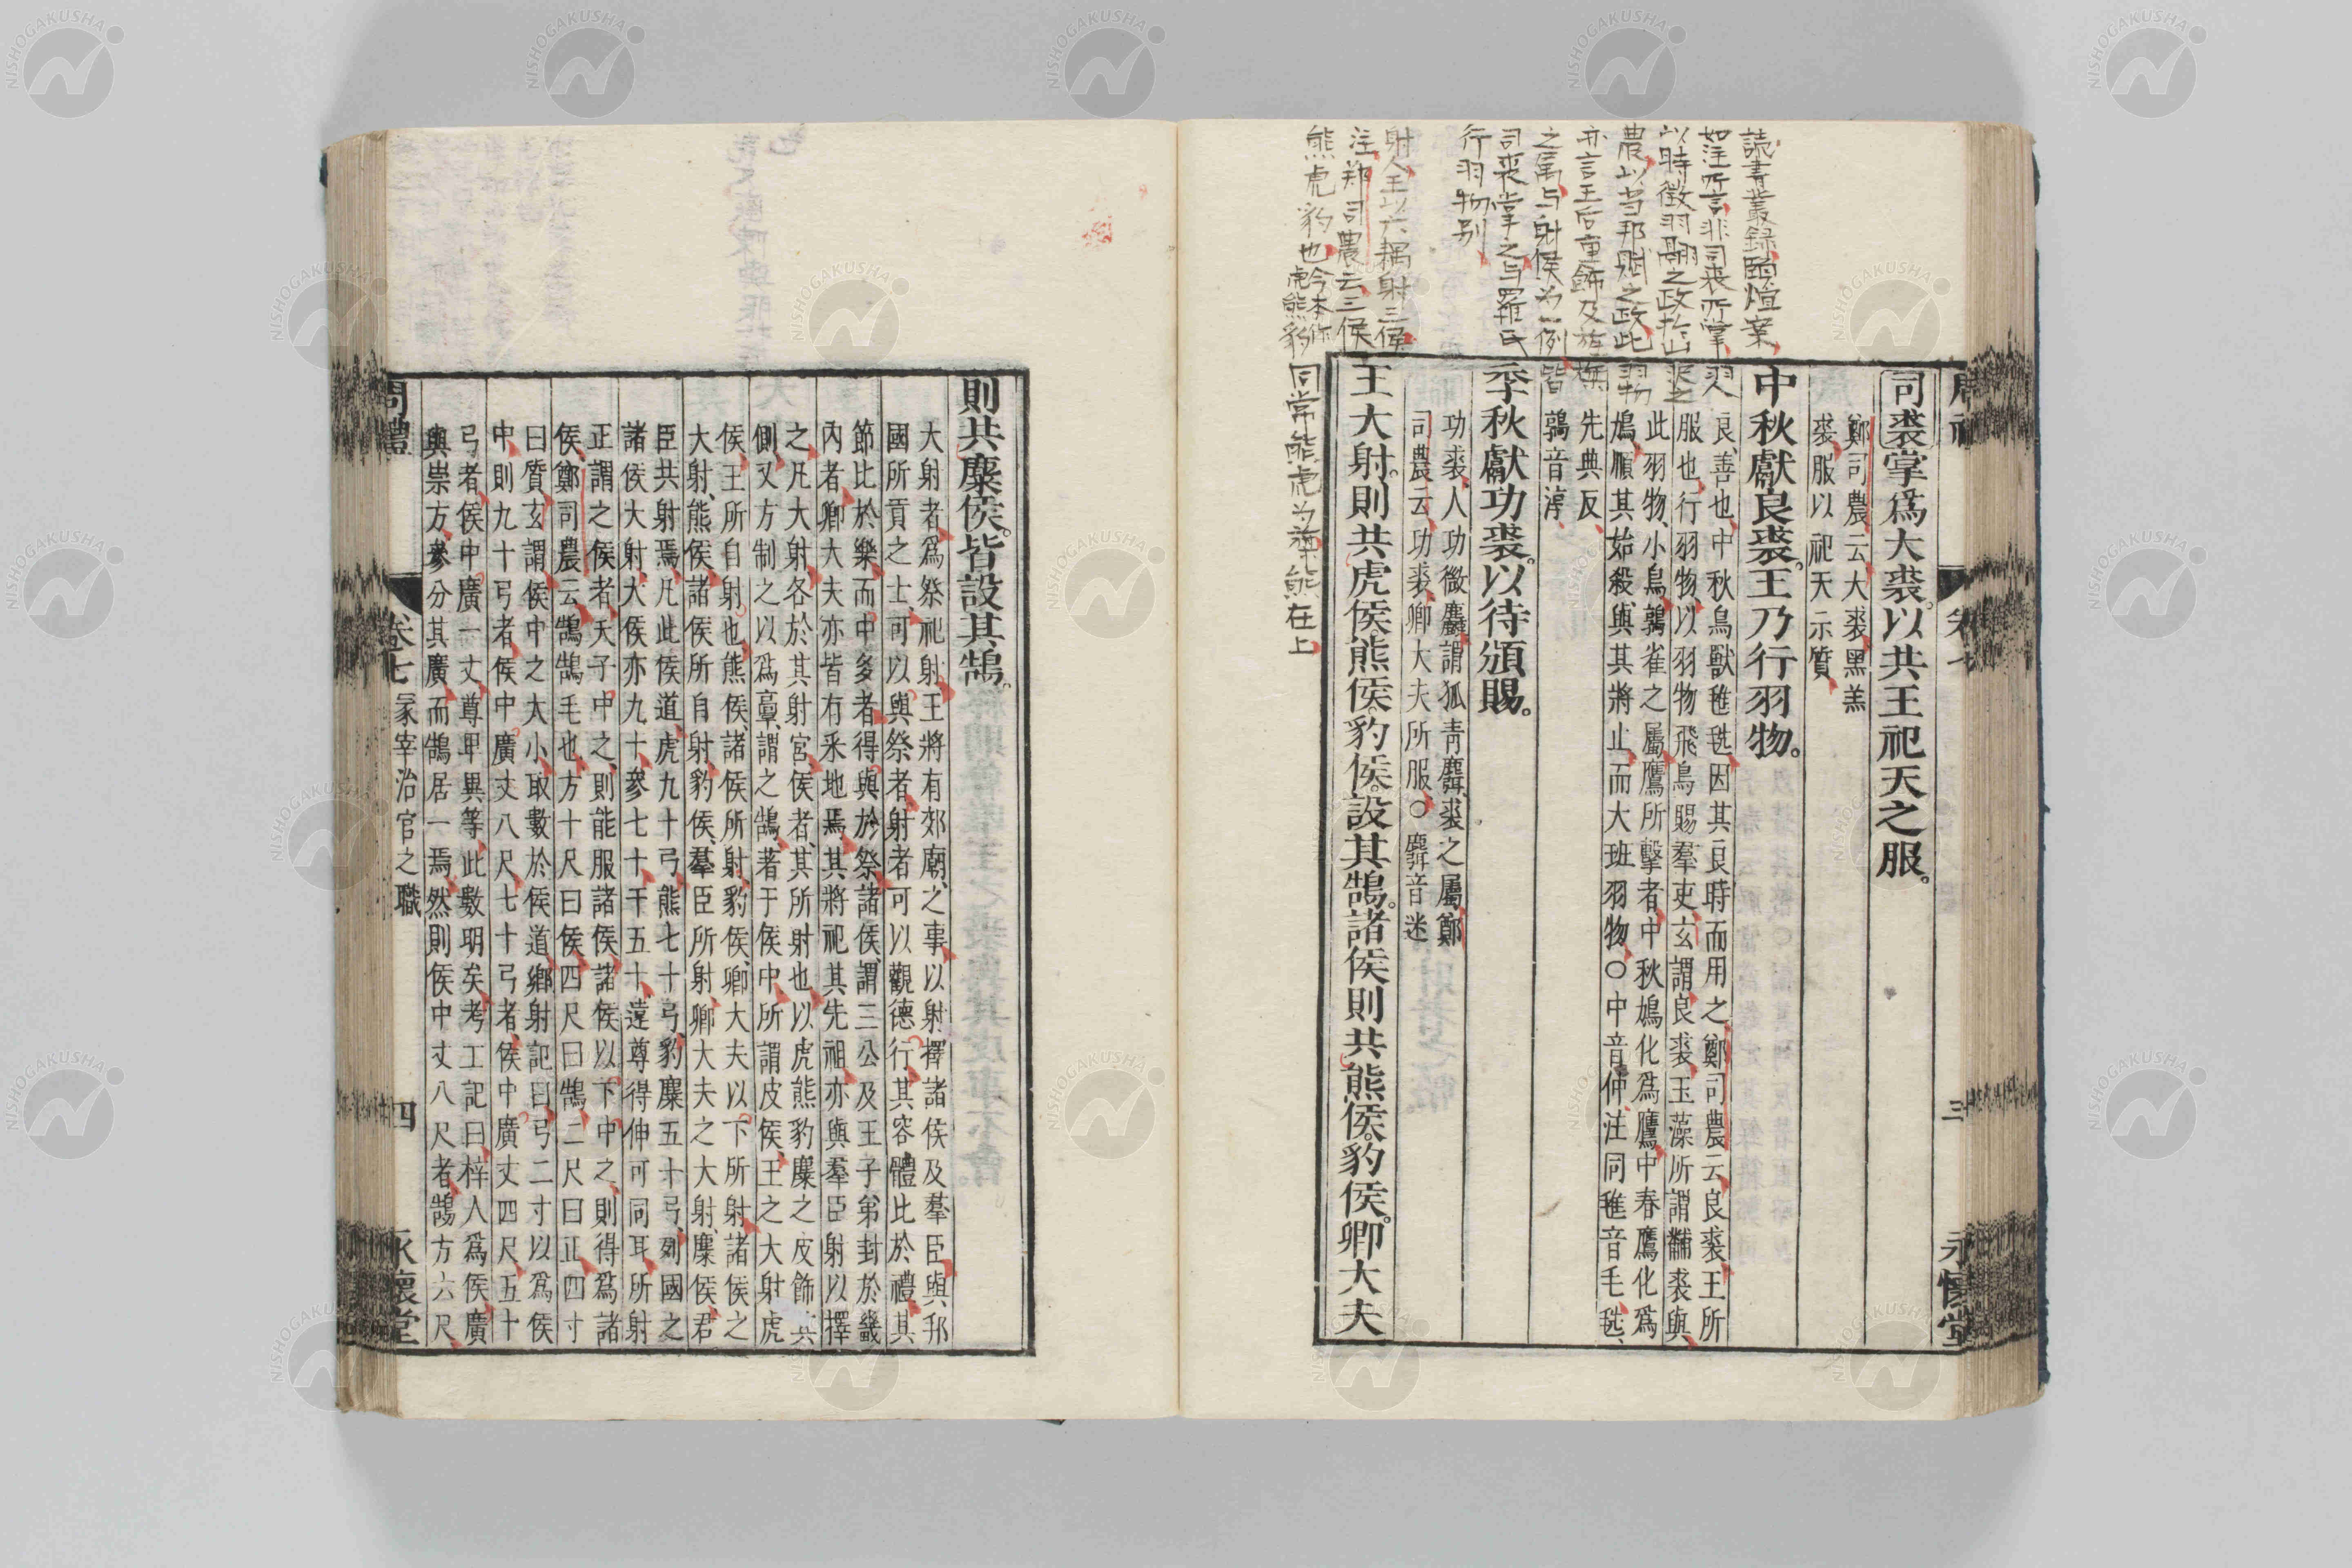 司裘掌爲大裘。以共王祀天之服。
鄭司農云、大裘、黑羔
裘、服以祀天示質、
中秋獻良裘。王乃行羽物。
良、善也、中秋鳥獸毨毨、因其良時而用之、鄭司農云、良裘、王所
服也、行羽物、以羽物飛鳥賜羣吏、玄謂良裘、玉藻所謂黼裘與、
此羽物、小鳥鶉雀之屬、鷹所擊者、中秋鳩化爲鷹、中春鷹化爲
鳩、順其始殺、與其將止、而大班羽物、○中音仲、注同毨音毛毨、
先典反、
鶉音淳
季秋獻功裘。以待頒賜。
功裘、人功微麤、謂狐青麛裘之屬、鄭
司農云、功裘、卿大夫所服、○麛音迷
王大射。則共虎侯。熊侯。豹侯。設其鵠。諸侯則共熊侯。豹侯。卿大夫
讀書叢錄頤煊案
如注所言、非司裘所掌、羽人
以時徵羽翮之政于山澤之
農、以当邦賦之政、此羽物
亦言王后車飾及旌旗
之属、与射侯为一例、皆
司裘掌之、与羅氏
行羽物别、
射人王以六耦射三侯
注鄭司農云三侯
熊虎豹也今本作
虎熊豹 同常熊虎为旗、熊在上、
三
永懷堂
則共麋侯。皆設其鵠。
大射者、爲祭祀射、王將有郊廟之事、以射擇諸侯及羣臣、與邦
國所貢之士、可以與祭者、射者可以觀德行、其容體比於禮、其
節比於樂、而中多者、得與於祭、諸侯、謂三公及王子弟封於畿
內者、卿大夫亦皆有采地焉、其將祀其先祖、亦與羣臣射以擇
之、凡大射、各於其射宮、侯者、其所射也、以虎熊豹麋之皮飾其
側、又方制之以爲䵊、謂之鵠、著于侯中、所謂皮侯、王之大射、虎
侯、王所自射也、熊侯、諸侯所射、豹侯、卿大夫以下所射、諸侯之
大射、熊侯、諸侯所自射、豹侯、羣臣所射、卿大夫之大射、麋侯、君
臣共射焉、凡此侯道、虎九十弓、熊七十弓、豹麋五十弓、列國之
諸侯大射、大侯亦九十、參七十、干五十、遠尊得伸可同耳、所射
正謂之侯者、天子中之、則能服諸侯、諸侯以下中之、則得爲諸
侯、鄭司農云、鵠、鵠毛也、方十尺曰侯、四尺曰鵠、二尺曰正、四寸
曰質、玄謂侯中之大小、取數於侯道、鄉射記曰、弓二寸以爲侯
中、則九十弓者、侯中廣丈八尺、七十弓者、侯中廣丈四尺、五十
弓者、侯中廣一丈、尊卑異等、此數明矣、考工記曰、梓人爲侯、廣
與崇方、參分其廣、而鵠居一焉、然則侯中丈八尺者、鵠方六尺、
周禮 卷七 冢宰治官之職 四 永懷堂